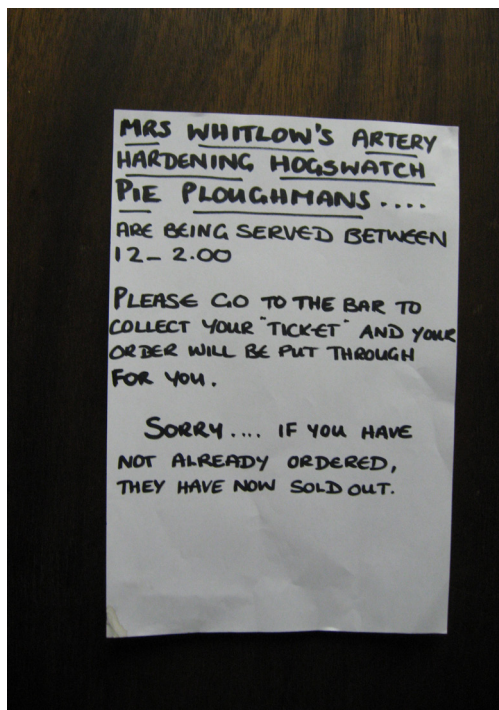 MRS WHITLOW'S ARTERY
HARDENING HOGSWATCH
PIE PLOUGHMANS....
ARE BEING SERVED BETWEEN
12-2.00
PLEASE GO TO THE BAR TO
COLLECT YOUR "TICKET" AND YOUR
ORDER WILL BE PUT THROUGH
FOR YOU.
SORRY.... IF YOU HAVE
NOT ALREADY ORDERED,
THEY HAVE NOW SOLD OUT.